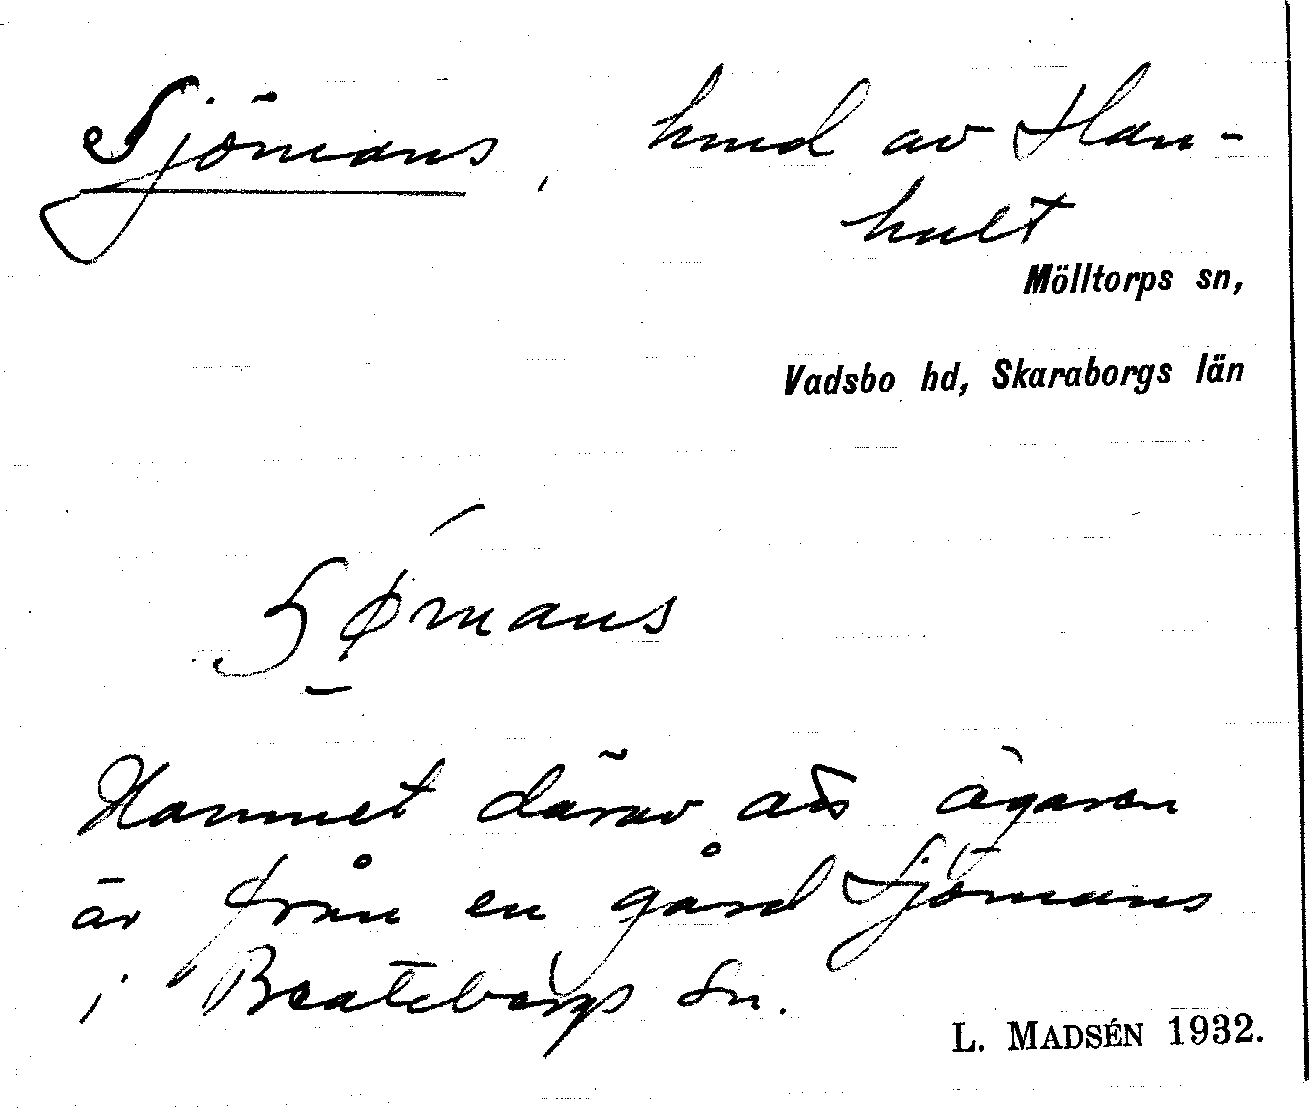 Sjömans, hmd av Han-
hult
Mölltorps sn,
Vadsbo hd, Skaraborgs län
Hamnet därav att ägaren
är från en gård Sjömans
i Breatebergs sn.
L. MADSÉN 1932.